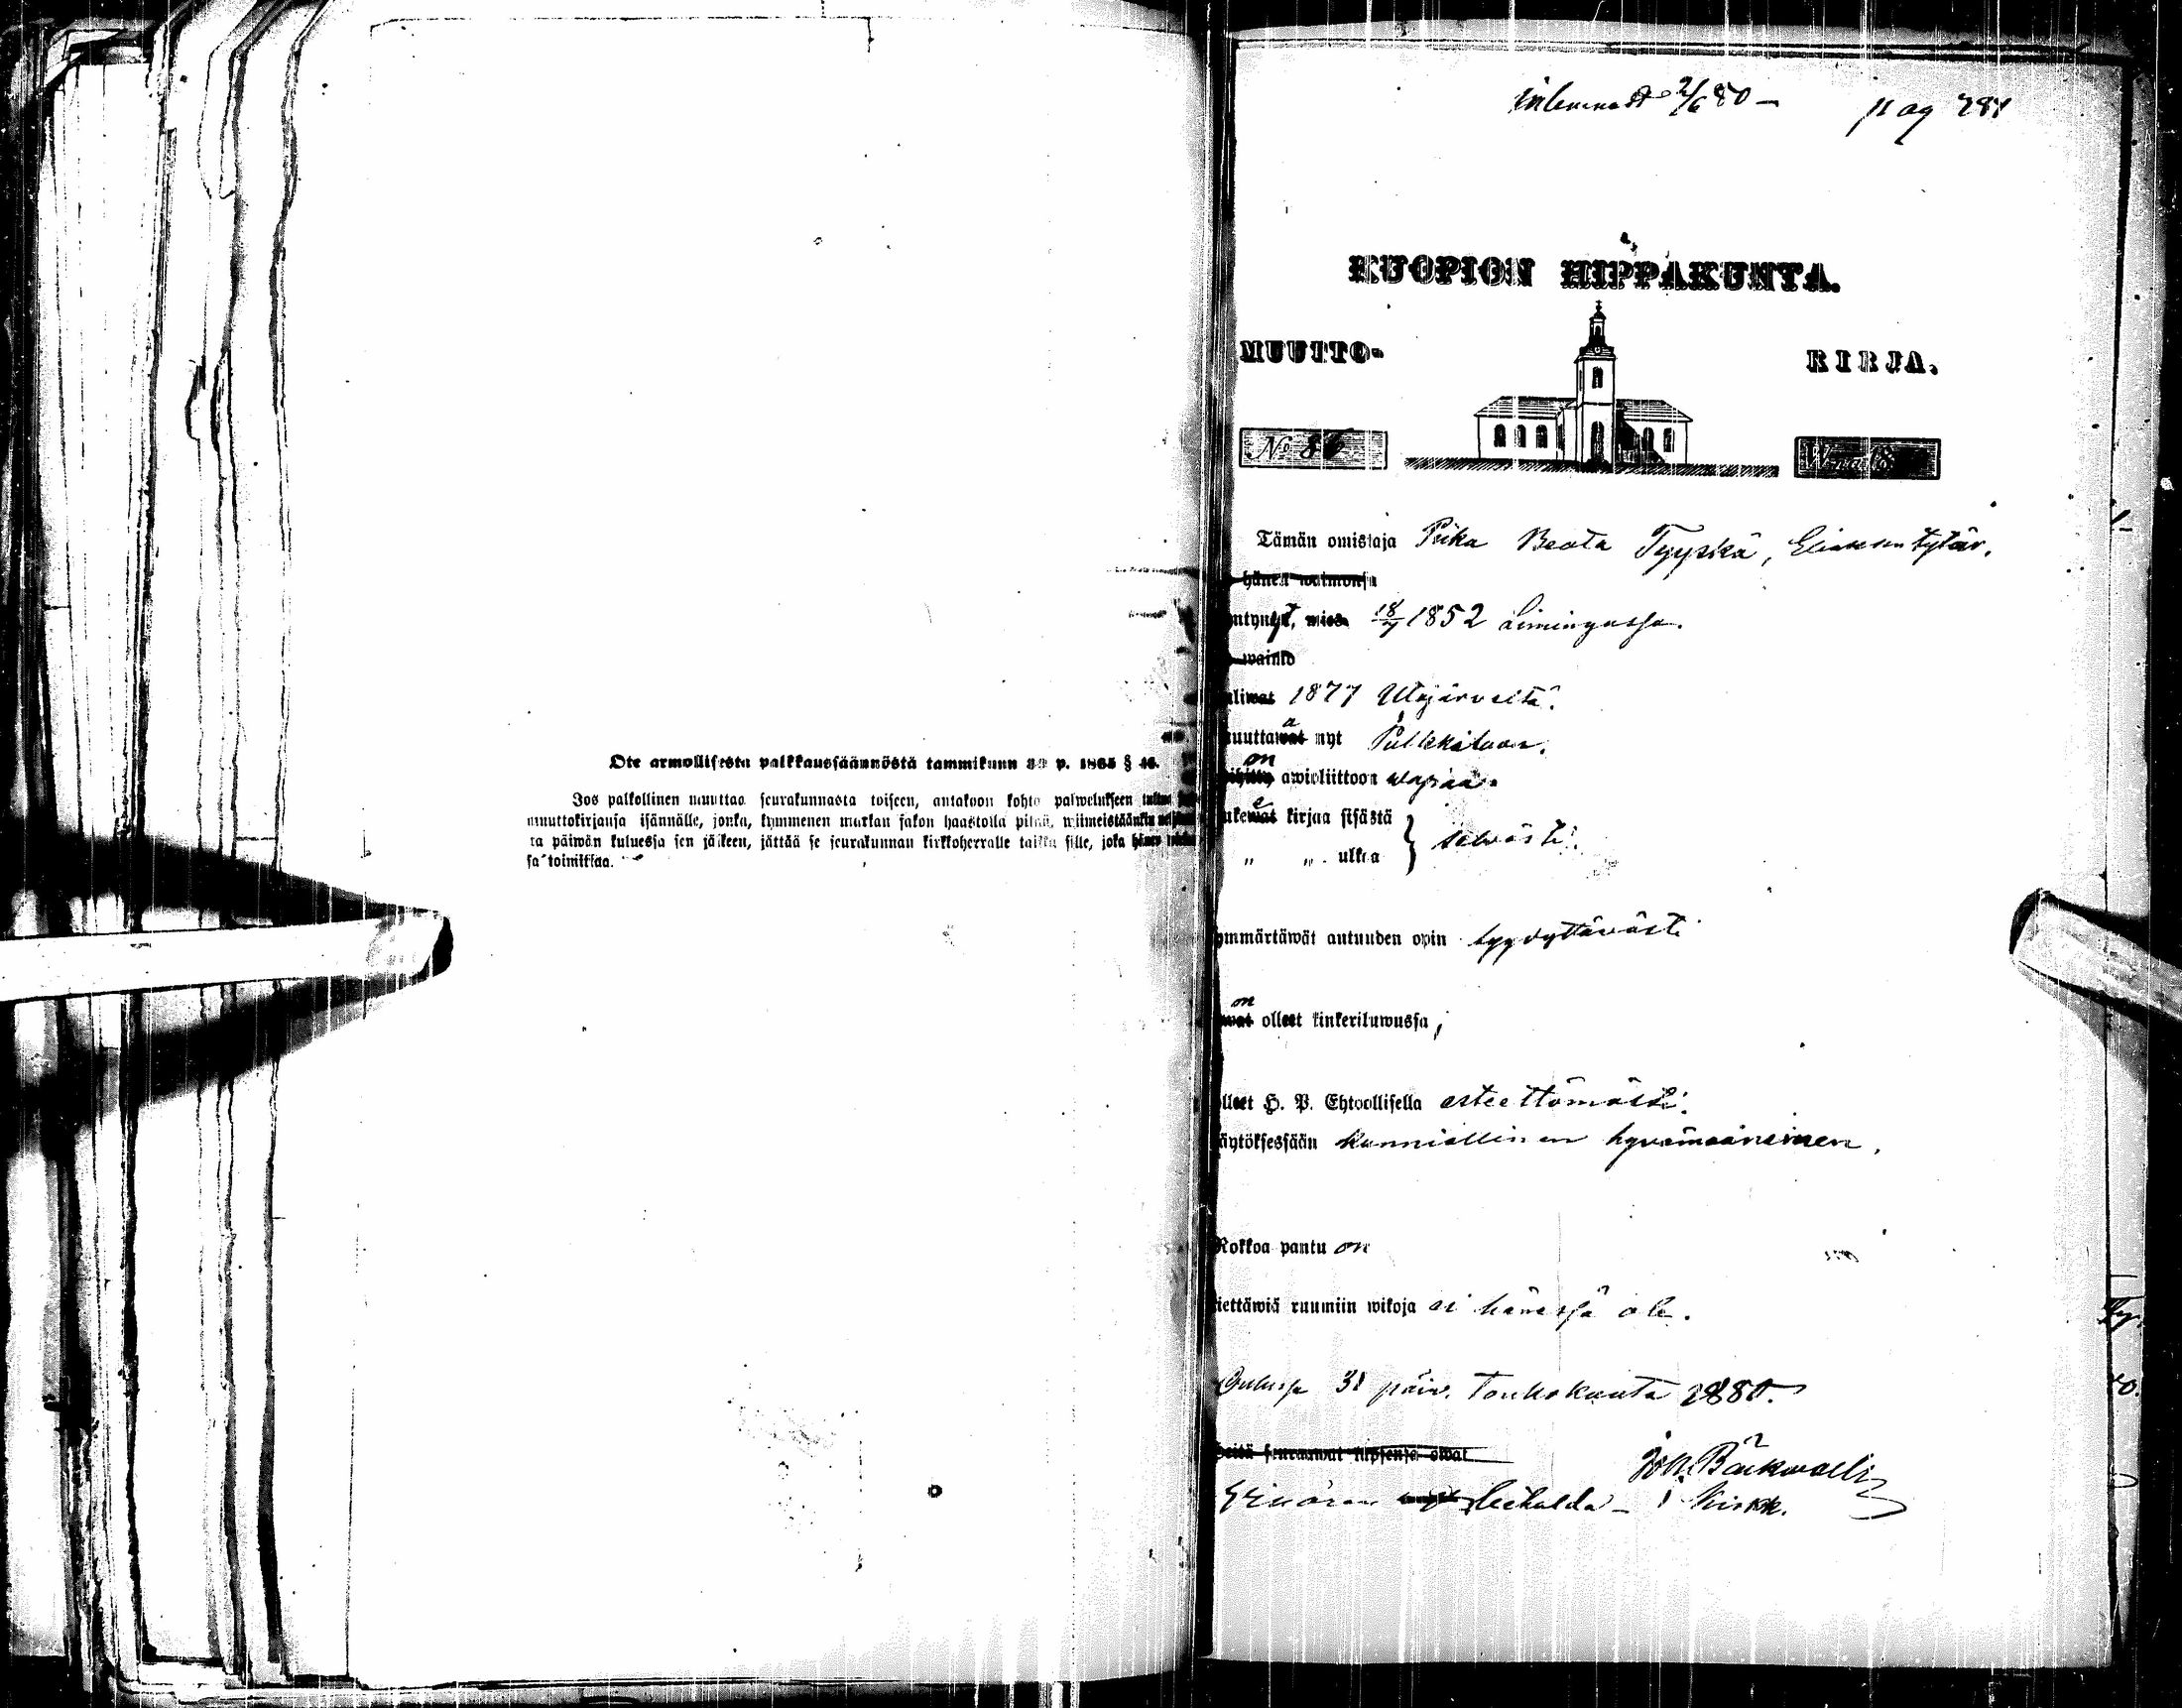 Ote armollisesta palkkaussäännöstä tammikunn 30 p. 1865 §
Jos palkollinen muuttaa seurakunnasta toiseen, antakoon kohta palwelukseen
muuttokirjansa isännälle, jonka, kymmenen markan sakon haastolla pitää, wiimeistäänkin
ta päiwän kuluessa sen jälkeen, jättää se seurakunnan kirkkoherralle taikka sille, joka
sa toimittaa.
inlemnadt 2/6 80 — pag 281
KUOPION HIPPAKUNTA.
MUUTTO- KIRJA.
No 86
Tämän omistaja Piika Beata Tyyskä, Eliaksen tytär.
hänen waimonsa
ntynyt, mies 18/7 1852 Limingassa.
waimo
liwat 1877 Utajärveltä.
muuttawat a nyt Pulkkilaan.
on awioliittoon wapaa.
ukewat e kirjaa sisästä
" " ulkoa } selvästi.
ymmärtäwät autuuden opin tyydyttävästi
on
wat olleet kinkeriluwussa,
olleet H. P. Ehtoollisella esteettömästi.
äytöksessään kunniallinen hyvämaineinen.
Rokkoa pantu on
iettäwiä ruumiin wikoja ei hänessä ole.
Oulussa 31 päiv. Toukokuuta 1880.
heitä seuraawat lapsensa owat
Joh. Bäckvall
Kirkk.